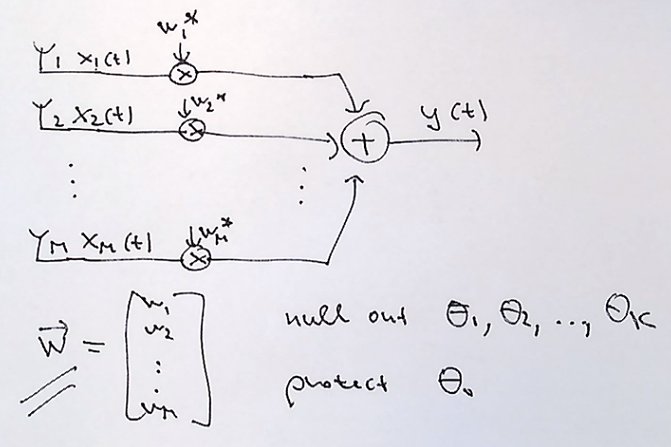 w₁*
Y₁ x₁(t)
w₂*
Y₂ x₂(t)
+ y(t)
⋮ ⋮
w_M*
Y_M x_M(t)
w⃗ = [w₁ w₂ ⋮ w_M]
null out θ₁, θ₂, .., θ_K
protect θ₀